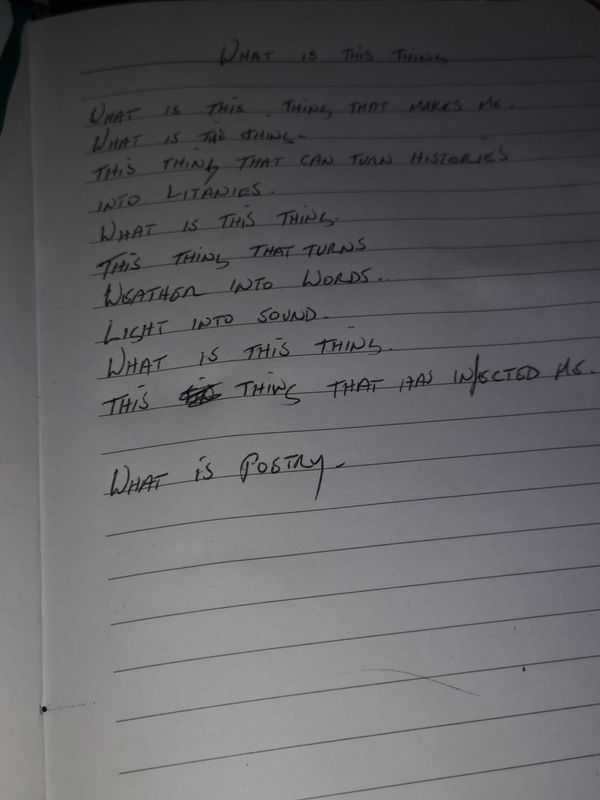 WHAT IS THIS THING
WHAT IS THIS THING THAT MAKES ME.
WHAT IS THIS THING.
THIS THING THAT CAN TURN HISTORIES
INTO LITANIES.
WHAT IS THIS THING.
THIS THING THAT TURNS
WEATHER INTO WORDS..
LIGHT INTO SOUND.
WHAT IS THIS THING.
THIS THING THAT HAS INFECTED ME.
WHAT IS POETRY.